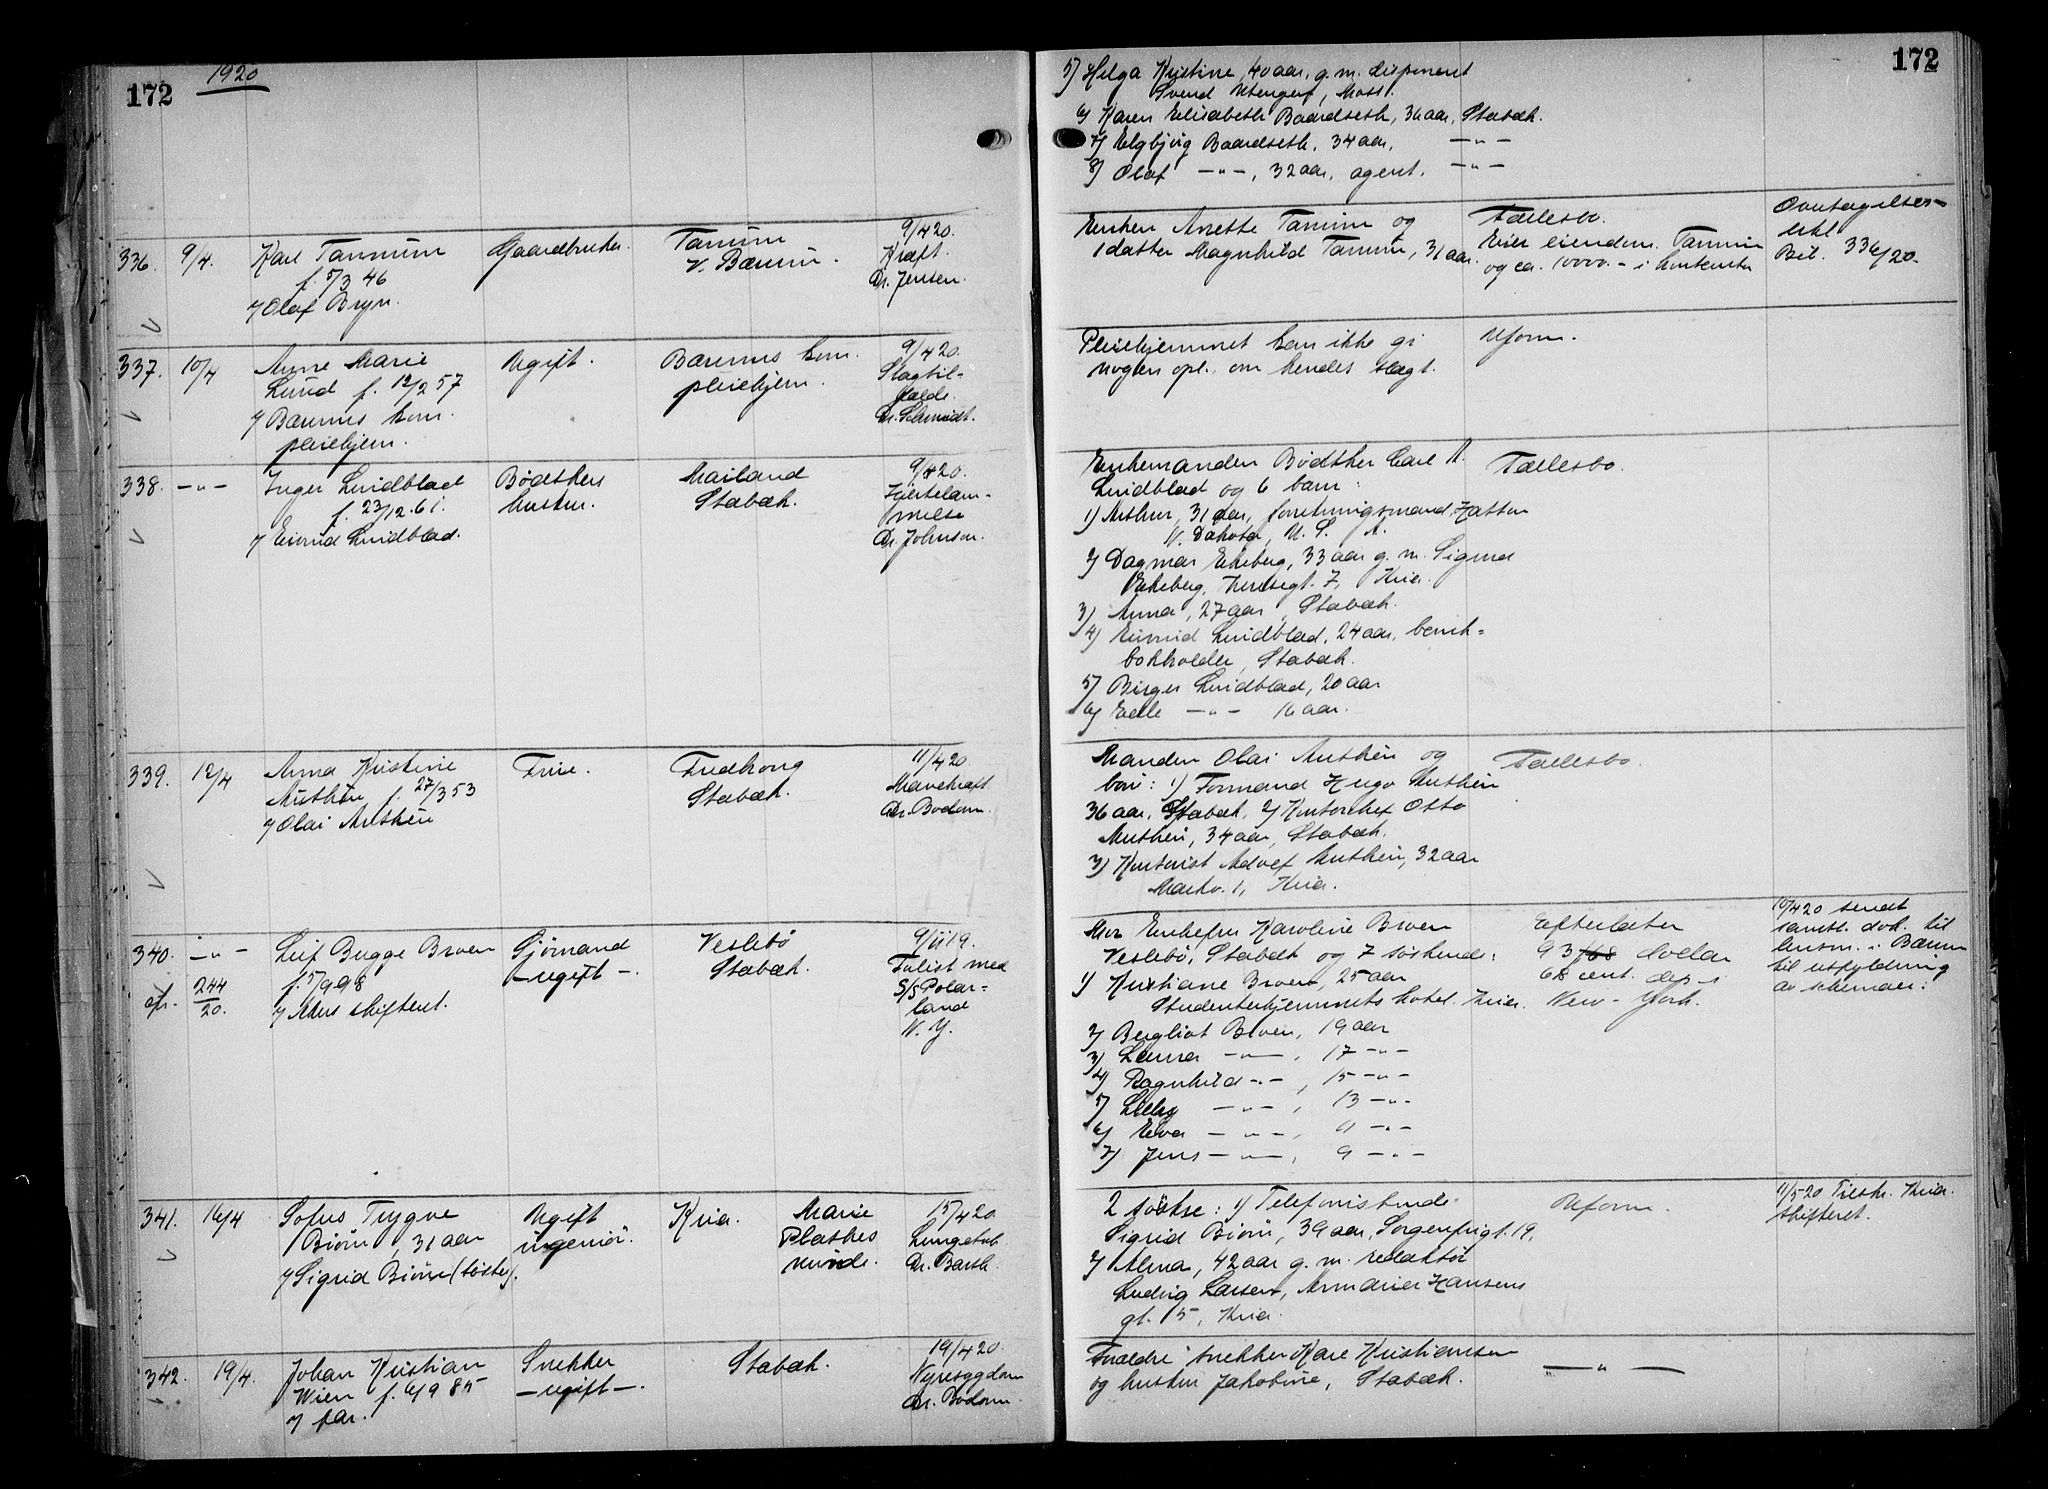 172
1920
336.
9/4.
Karl Tannum
f. 5/3 46
7 Olaf Bryn.
Gaardbruker.
Tanum
V. Bærum.
9/4 20.
Kræft.
Dr. Jensen.
337.
10/4
Anne Marie
Lund f. 12/2 57
7 Bærums kom.
pleiehjem.
Ugift.
Bærums kom.
pleiehjem.
9/4 20.
Slagtil-
fælde.
Dr. Schmidt.
338.
-"-
Inger Lindblad
f. 23/12.61.
7 Eivind Lindblad.
Bødkers
hustru.
Mailand
Stabæk.
9/4 20.
Hjertelam-
melse
Dr. Johnson.
339.
12/4
Anna Kristine
Authén f. 27/3 53
7 Olai Authén
Frue.
Fredborg
Stabæk.
11/4 20.
Mavekræft
Dr. Bodom.
340.
-"-
cfr. 244/20.
Leif Bugge Broen
f. 5/9 98
7 Akers skifteret.
Sjømand
-ugift-.
Veslebø
Stabæk.
9/11 19.
Forlist med
S/S Polar-
land
N. Y.
341.
16/4
Sofus Trygve
Biørn, 31 aar
7 Sigrid Biørn (søster).
Ugift
ingeniør.
Kria.
Marie
Plathes
minde.
15/4 20
Lungetub.
Dr. Barth.
342.
19/4.
Johan Kristian
Wien f. 6/9 85
7 far.
Snekker
-ugift-.
Stabæk.
19/4 20.
Nyresygdom
Dr. Bodom.
172
5) Helga Kristine, 40 aar, g. m. disponent
Svend, Moss.
6) Karen Elisabeth Baardseth, 36 aar, Stabæk.
7) Ingbjørg Baardseth, 34 aar, -"-
8) Olaf -"-, 32 aar, agent. -"-
Enken Anette Tanum og
1 datter Magnhild Tanum, 31 aar.
Fællesbo.
Eier eiendom. Tanum
og ca. 10000.- i kontanter
Overtagelses-
erkl.
Bil. 336/20.
Pleiehjemmet kan ikke gi
nogen opl. om hendes slægt.
Uform.
Enkemanden Bødker Carl A.
Lindblad og 6 barn:
1) Arthur, 31 aar, forretningsmand, Hatton
N. Dakota, U. S. A.
2) Dagmar Ekeberg, 33 aar g. m. Sigurd
Ekeberg, 7, Kria.
3) Anna, 27 aar, Stabæk.
4) Eivind Lindblad, 24 aar, bank-
bokholder, Stabæk.
5) Birger Lindblad, 20 aar
6) Edle -"- 16 aar.
Fællesbo.
Manden Olai Authén og
barn: 1) Formand Hugo Authén
36 aar, Stabæk, 2) Kontorchef Otto
Authén, 34 aar, Stabæk.
3) Kontorist Adolf Authén, 32 aar
Markv. 1, Kria.
Fællesbo.
Mor Enkefru Karoline Broen
Veslebø, Stabæk og 7 søskend:
1) Kristiane Broen, 25 aar
Studenterhjemmets hotel. Kria.
2) Bergliot Broen, 19 aar
3) Laura -"-, 17 -"-
4) Ragnhild -"-, 15 -"-
5) Lilly -"-, 13 -"-
6) Eva -"-, 11 -"-
7) Jens -"-, 9 -"-
Efterlater
93 dollar
68 cent. dep. i
New-York.
10/4 20 sendt
samtl. dok. til
lensm. i Bærum
til utfyldning
av schemaer.
2 søstre: 1) Telefonistinde
Sigrid Biørn, 39 aar, Sorgenfrigt. 19.
2) Alma, 42 aar g. m. redaktør
Ludvig Larsen, Armauer Hansens
gt. 15, Kria.
Uform.
11/5-20 Tilskr. Kria.
skifteret.
Forældre: snekker Karl Kristiansen
og hustru Jakobine, Stabæk.
-"-